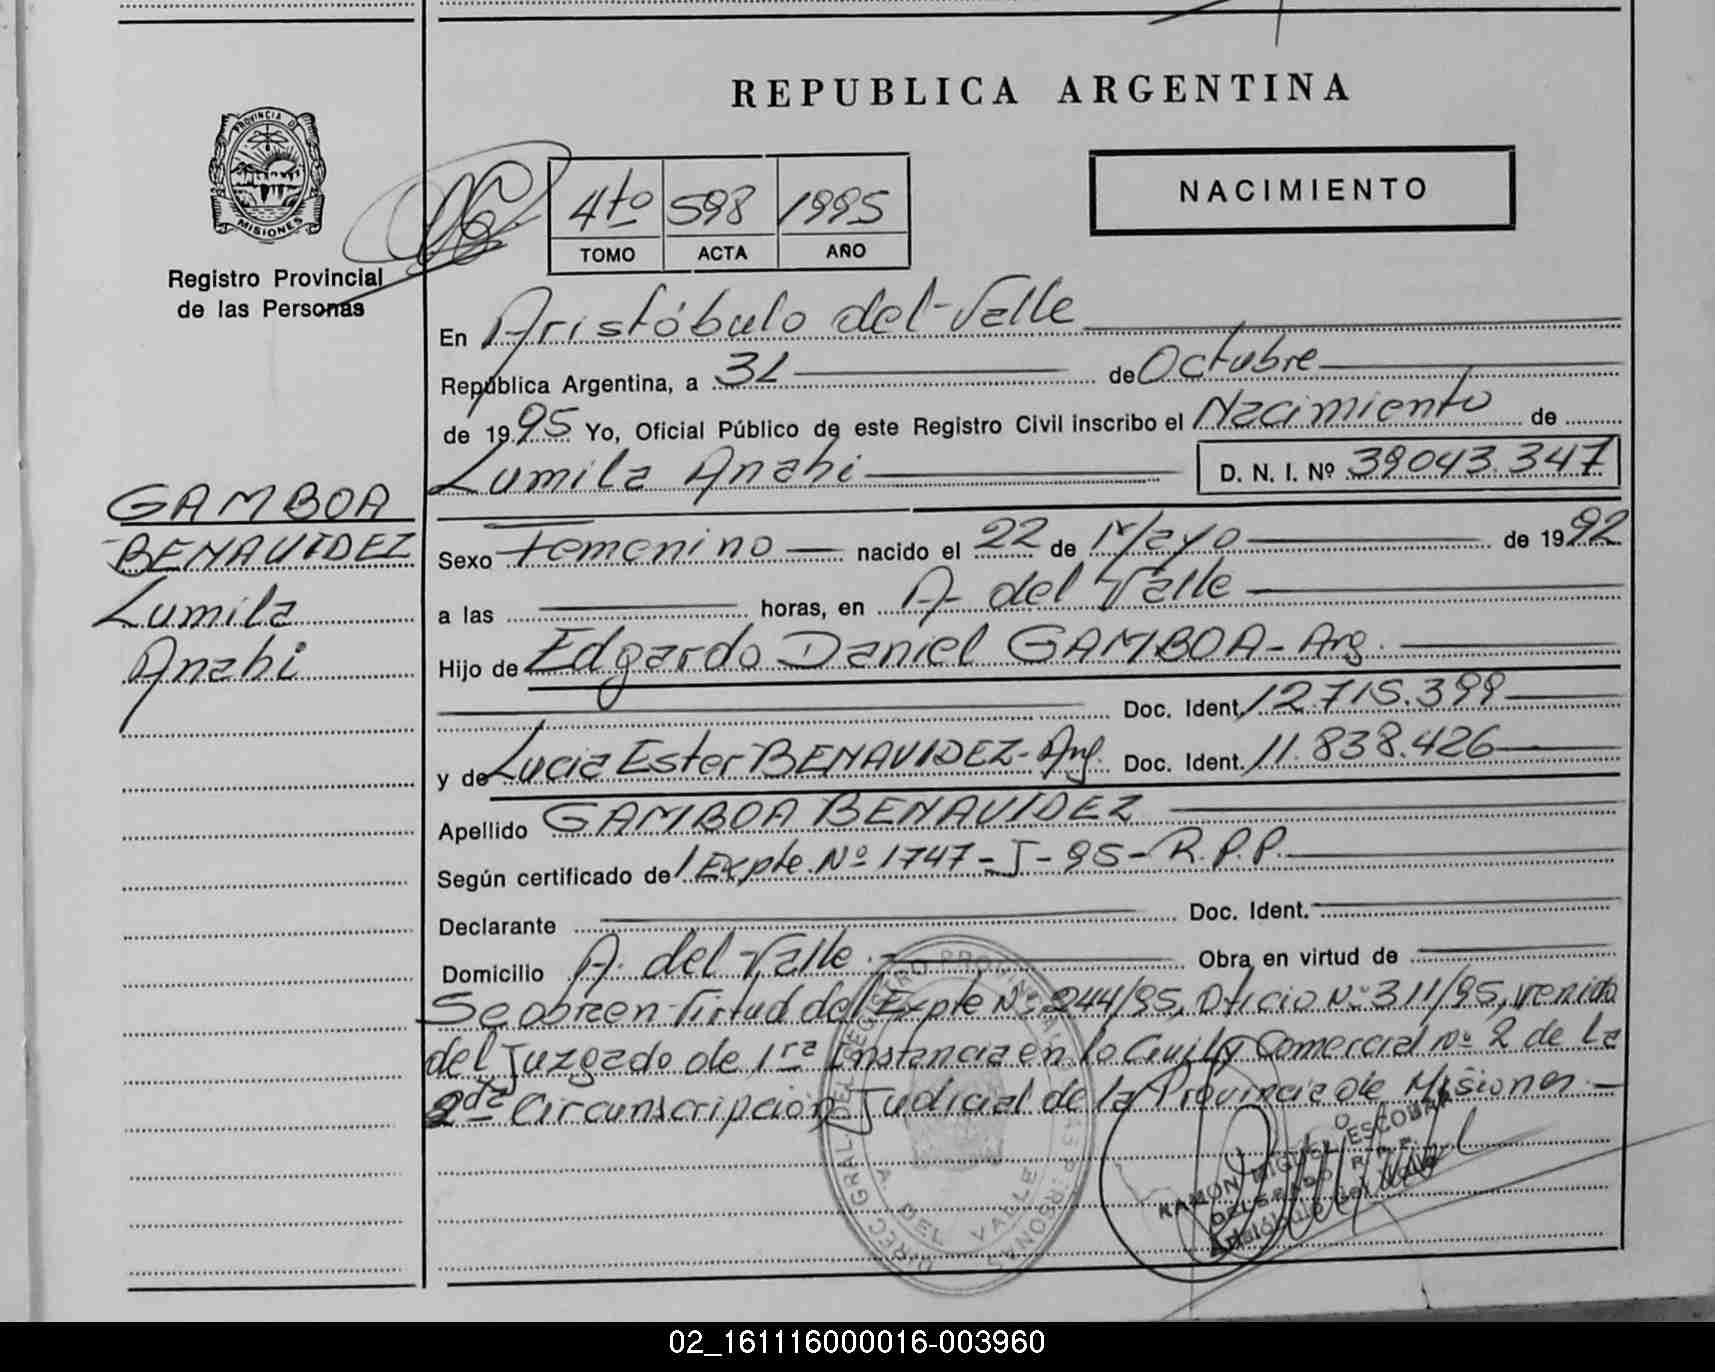 REPUBLICA ARGENTINA
PROVINCIA D
MISIONES
Registro Provincial
de las Personas
4to 598 1995
TOMO ACTA AÑO
NACIMIENTO
En Aristóbulo del Valle
República Argentina, a 31 de Octubre
de 1995 Yo, Oficial Público de este Registro Civil inscribo el Nacimiento de
Lumila Anahi D. N. I. Nº 39043.347
GAMBOA
BENAVIDEZ
Lumila
Anahi
Sexo Femenino nacido el 22 de Mayo de 1992
a las horas, en A. del Valle
Hijo de Edgardo Daniel GAMBOA - Arg.
Doc. Ident. 12.715.399
y de Lucia Ester BENAVIDEZ - Arg. Doc. Ident. 11.838.426
Apellido GAMBOA BENAVIDEZ
Según certificado de Expte. Nº 1747 - J - 95 - R.P.P.
Declarante Doc. Ident.
Domicilio A. del Valle. Obra en virtud de
Se obra en Virtud del Expte Nº 244/95, Oficio Nº 311/95, venido
del Juzgado de 1ra Instancia en lo Civil y Comercial nº 2 de la
2da Circunscripción Judicial de la Provincia de Misiones.-
A. DEL VALLE
RAMON MIGUEL ESCOBAR
DELEGADO R.P.P.
Aristóbulo del Valle
02_161116000016-003960